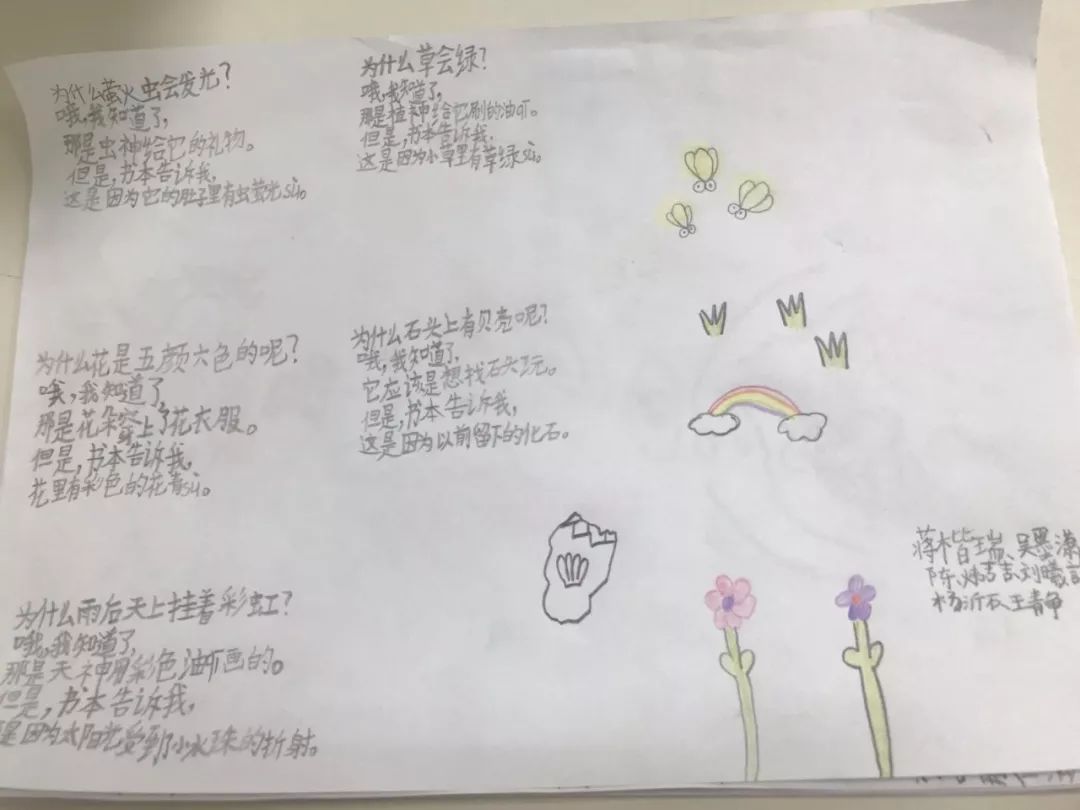 为什么萤火虫会发光?
哦,我知道了,
那是虫神给它的礼物。
但是,书本告诉我,
这是因为它的肚子里有虫萤光sù。
为什么草会绿?
哦,我知道了,
那是植神给它刷的油qī。
但是,书本告诉我,
这是因为小草里有草绿sù。
为什么花是五颜六色的呢?
哦,我知道了,
那是花朵穿上了花衣服。
但是,书本告诉我,
花里有彩色的花青sù。
为什么石头上有贝壳呢?
哦,我知道了,
它应该是想找石头玩。
但是,书本告诉我,
这是因为以前留下的化石。
为什么雨后天上挂着彩虹?
哦,我知道了,
那是天神用彩色油画的。
但是,书本告诉我,
是因为太阳光受到小水珠的折射。
蒋楷瑞、吴墨潇
陈 吉、刘曦
杨沂辰、王静